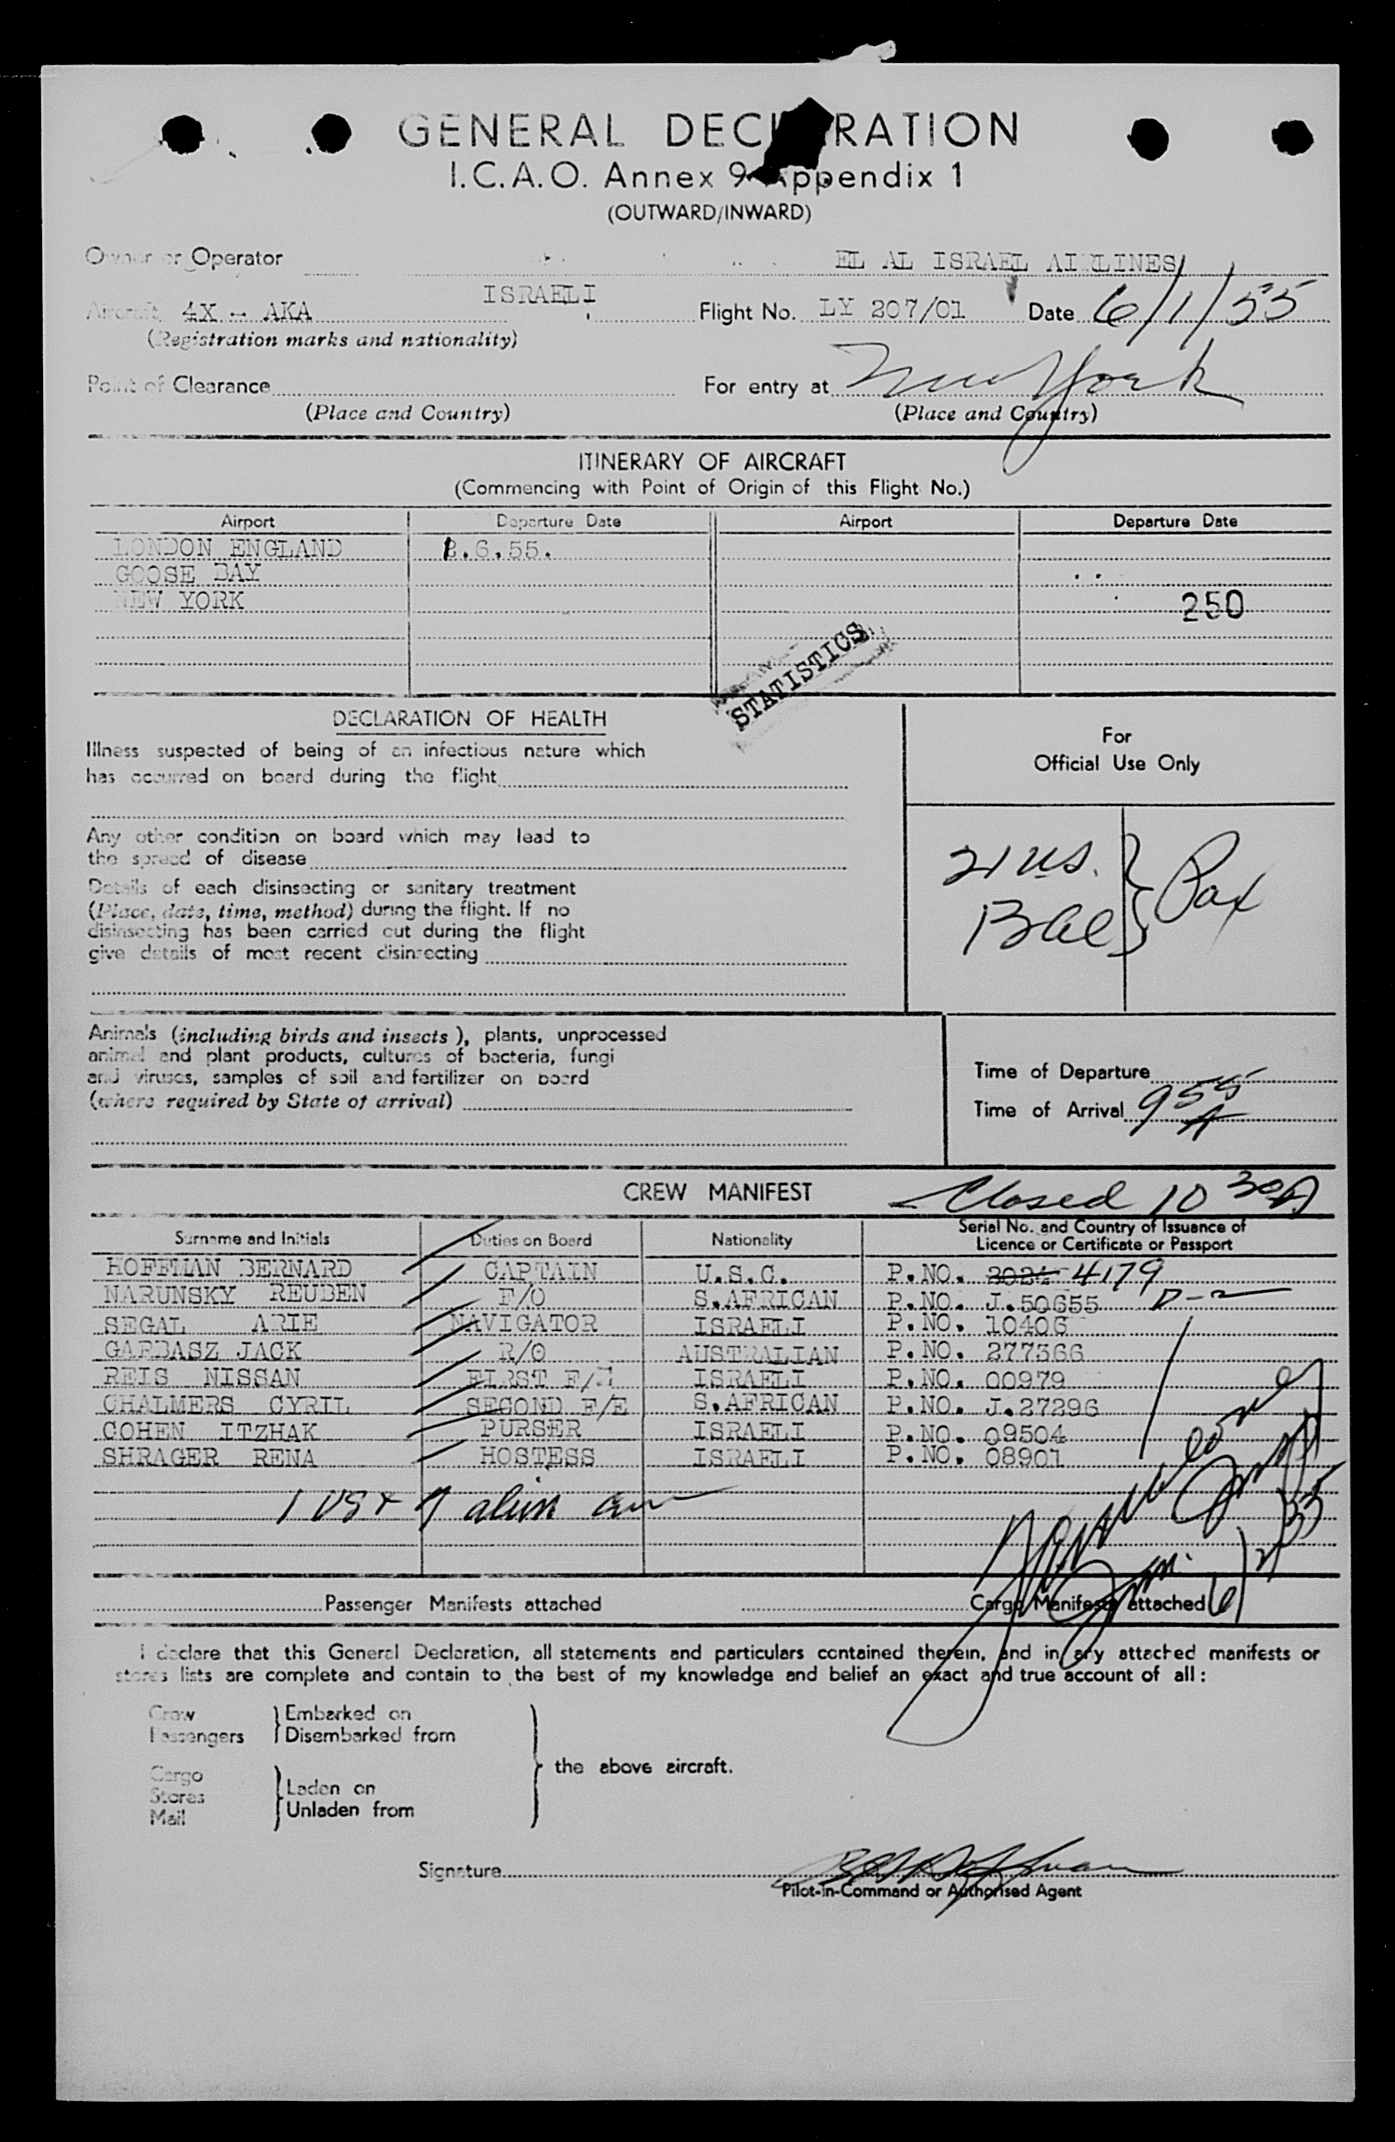 GENERAL DEC RATION
I.C.A.O. Annex 9 Appendix 1
(OUTWARD/INWARD)
Owner or Operator EL AL ISRAEL AIRLINES
Aircraft 4X - AKA ISRAELI Flight No. LY 207/01 Date 6/1/55
(Registration marks and nationality)
Point of Clearance For entry at New York
(Place and Country) (Place and Country)
ITINERARY OF AIRCRAFT
(Commencing with Point of Origin of this Flight No.)
Airport Departure Date Airport Departure Date
LONDON ENGLAND .6.55.
GOOSE BAY
NEW YORK 250
STATISTICS
DECLARATION OF HEALTH
Illness suspected of being of an infectious nature which
has occurred on board during the flight
For
Official Use Only
Any other condition on board which may lead to
the spread of disease
Details of each disinsecting or sanitary treatment
(Place, date, time, method) during the flight. If no
disinsecting has been carried out during the flight
give details of most recent disinsecting
21 US. Pax
Animals (including birds and insects), plants, unprocessed
animal and plant products, cultures of bacteria, fungi
and viruses, samples of soil and fertilizer on board
(where required by State of arrival)
Time of Departure
Time of Arrival 955 A
CREW MANIFEST Closed 10 30 A
Surname and Initials Duties on Board Nationality Serial No. and Country of Issuance of
Licence or Certificate or Passport
HOFFMAN BERNARD CAPTAIN U.S.C. P.NO. 4179
NARUNSKY REUBEN F/O S.AFRICAN P.NO. J.50655 D-2
SEGAL ARIE NAVIGATOR ISRAELI P.NO. 10406
GARBASZ JACK R/O AUSTRALIAN P.NO. 277366
REIS NISSAN FIRST F/E ISRAELI P.NO. 00979
CHALMERS CYRIL SECOND F/E S.AFRICAN P.NO. J.27296
COHEN ITZHAK PURSER ISRAELI P.NO. 09504
SHRAGER RENA HOSTESS ISRAELI P.NO. 08901
1 US + 7 alien
Passenger Manifests attached Cargo Manifests attached
I declare that this General Declaration, all statements and particulars contained therein, and in any attached manifests or
stores lists are complete and contain to the best of my knowledge and belief an exact and true account of all :
Crew Embarked on
Passengers Disembarked from
the above aircraft.
Cargo
Stores Laden on
Mail Unladen from
Signature
Pilot-in-Command or Authorised Agent